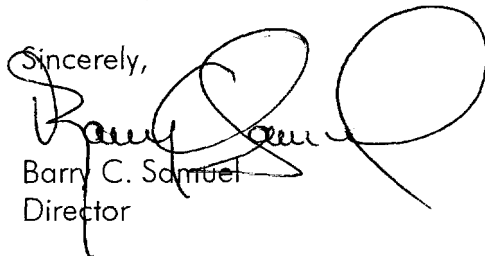 Sincerely,
Barry Samuel
Barry C. Samuel
Director